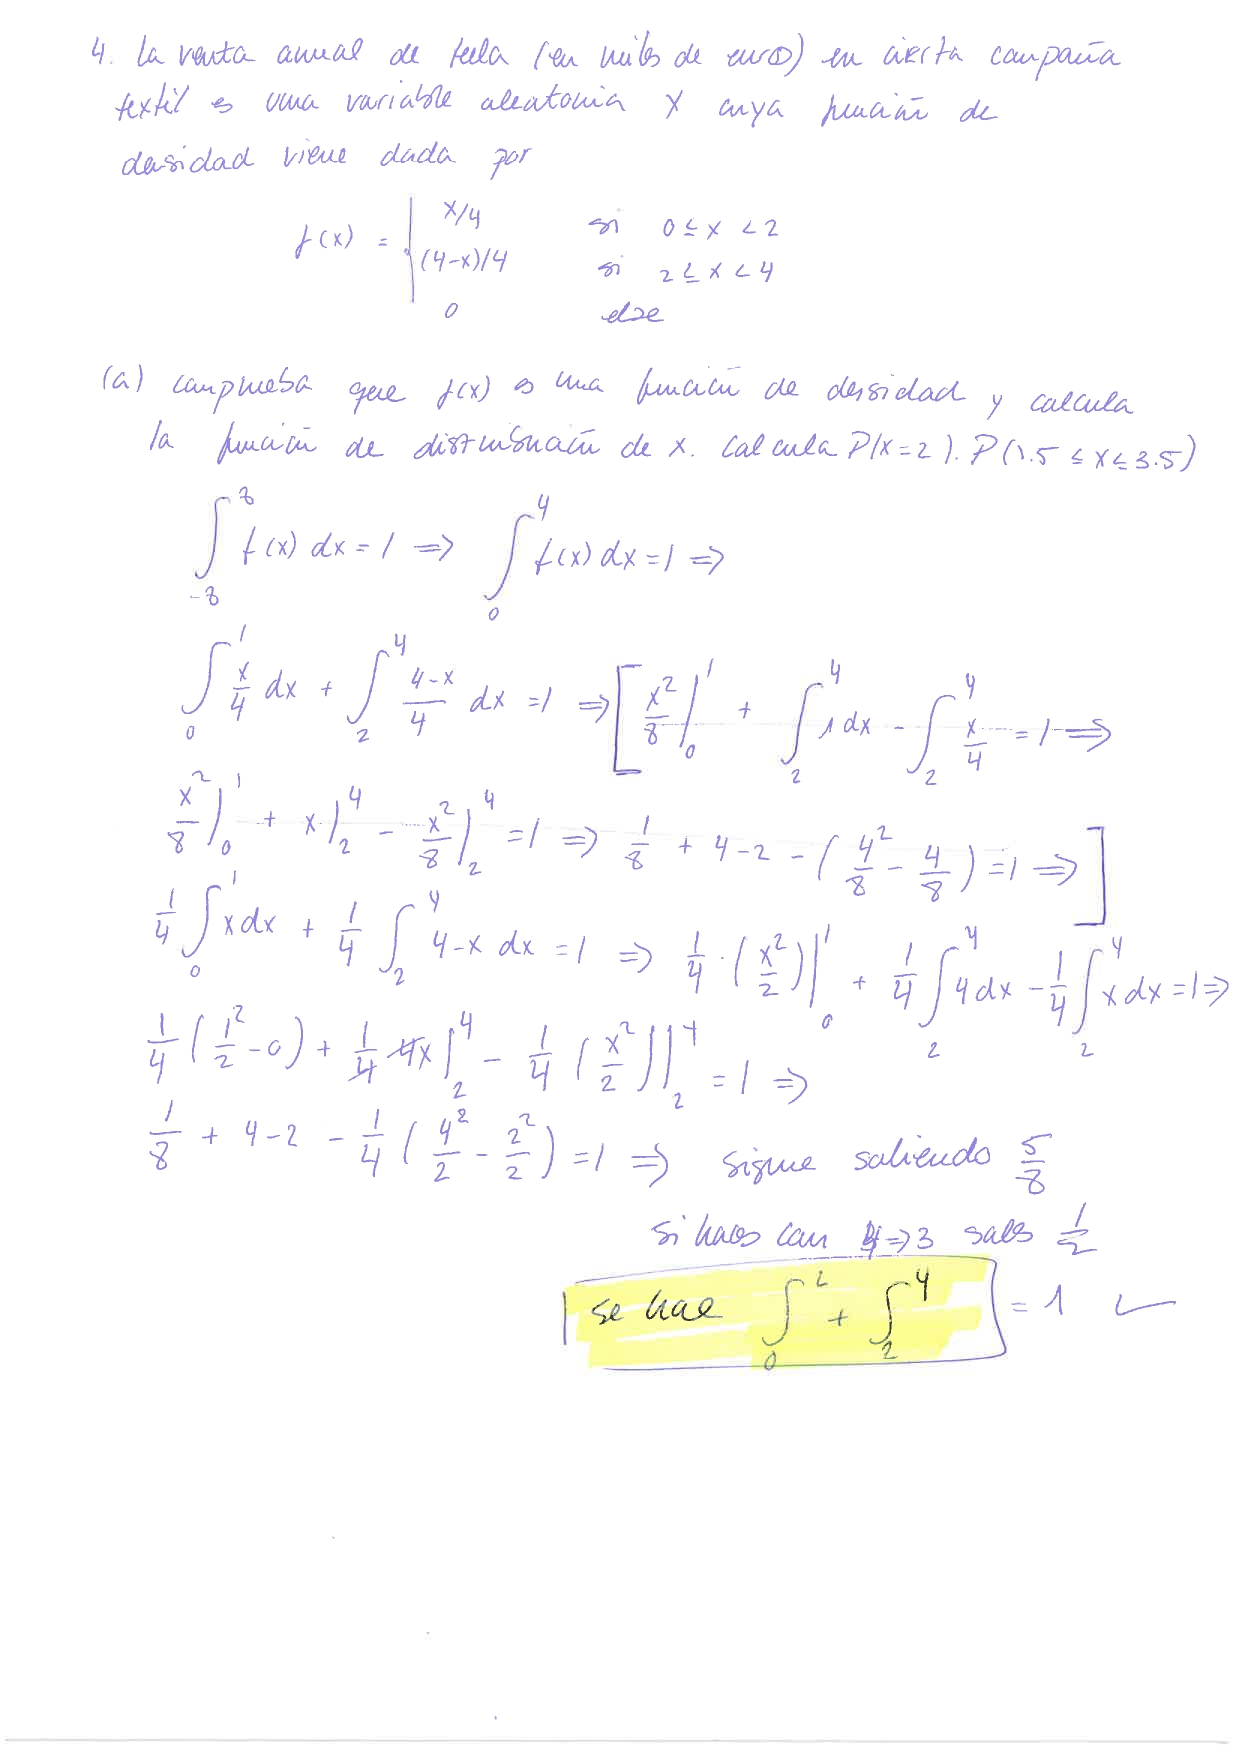 4. La venta anual de tela (en miles de euro) en cierta compañia
textil es una variable aleatoria X cuya función de
densidad viene dada por
f(x) = | x/4 si 0 ≤ x < 2
(4-x)/4 si 2 ≤ x < 4
0 else
(a) comprueba que f(x) es una función de densidad y calcula
la función de distribución de x. Calcula P(x=2). P(1.5 ≤ x ≤ 3.5)
∫_{-∞}^{∞} f(x) dx = 1 => ∫_0^4 f(x) dx = 1 =>
∫_0^1 x/4 dx + ∫_2^4 (4-x)/4 dx = 1 => [ x²/8 |_0^1 + ∫_2^4 1 dx - ∫_2^4 x/4 = 1 =>
x²/8 )_0^1 + x )_2^4 - x²/8 )_2^4 = 1 => 1/8 + 4-2 - ( 4²/8 - 4/8 ) = 1 => ]
1/4 ∫_0^1 x dx + 1/4 ∫_2^4 4-x dx = 1 => 1/4 · ( x²/2 ) |_0^1 + 1/4 ∫_2^4 4 dx - 1/4 ∫_2^4 x dx = 1 =>
1/4 ( 1²/2 - 0 ) + 1/4 4x |_2^4 - 1/4 ( x²/2 ) ]_2^4 = 1 =>
1/8 + 4-2 - 1/4 ( 4²/2 - 2²/2 ) = 1 => sigue saliendo 5/8
si haces con 4 => 3 sale 1/2
se hace ∫_0^2 + ∫_2^4 = 1 ✓